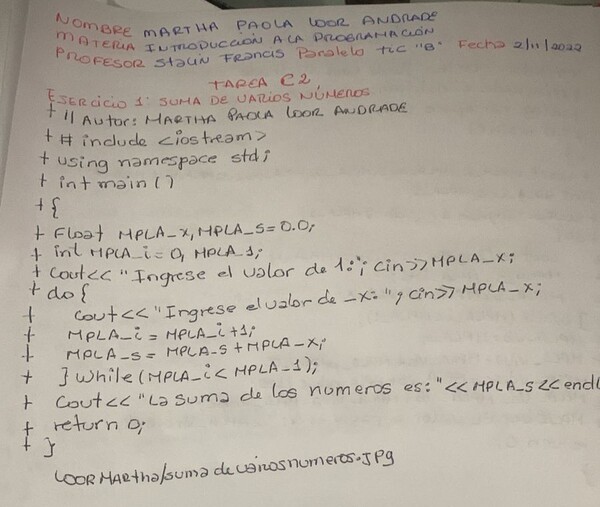 NOMBRE MARTHA PAOLA LOOR ANDRADE
MATERIA INTRODUCCIÓN A LA PROGRAMACIÓN
PROFESOR Stalin Francis Paralelo tic "B" Fecha 2/11/2022
TAREA C2
EJERCICIO 1: SUMA DE VARIOS NÚMEROS
+ // Autor: MARTHA PAOLA LOOR ANDRADE
+ # include <iostream>
+ using namespace std;
+ int main ()
+ {
+ Float MPLA_x, MPLA_s=0.0;
+ int MPLA_i=0, MPLA_1;
+ cout<< "Ingrese el valor de 1:"; cin>>MPLA_x;
+ do {
+ cout<< "Ingrese el valor de -x: "; cin>> MPLA_x;
+ MPLA_i = MPLA_i+1;
+ MPLA_s = MPLA_s + MPLA_x;
+ } While (MPLA_i < MPLA_1);
+ Cout<< "La suma de los numeros es: "<< MPLA_s << endl
+ return 0;
+ }
LOORMartha/suma de varios numeros.JPg